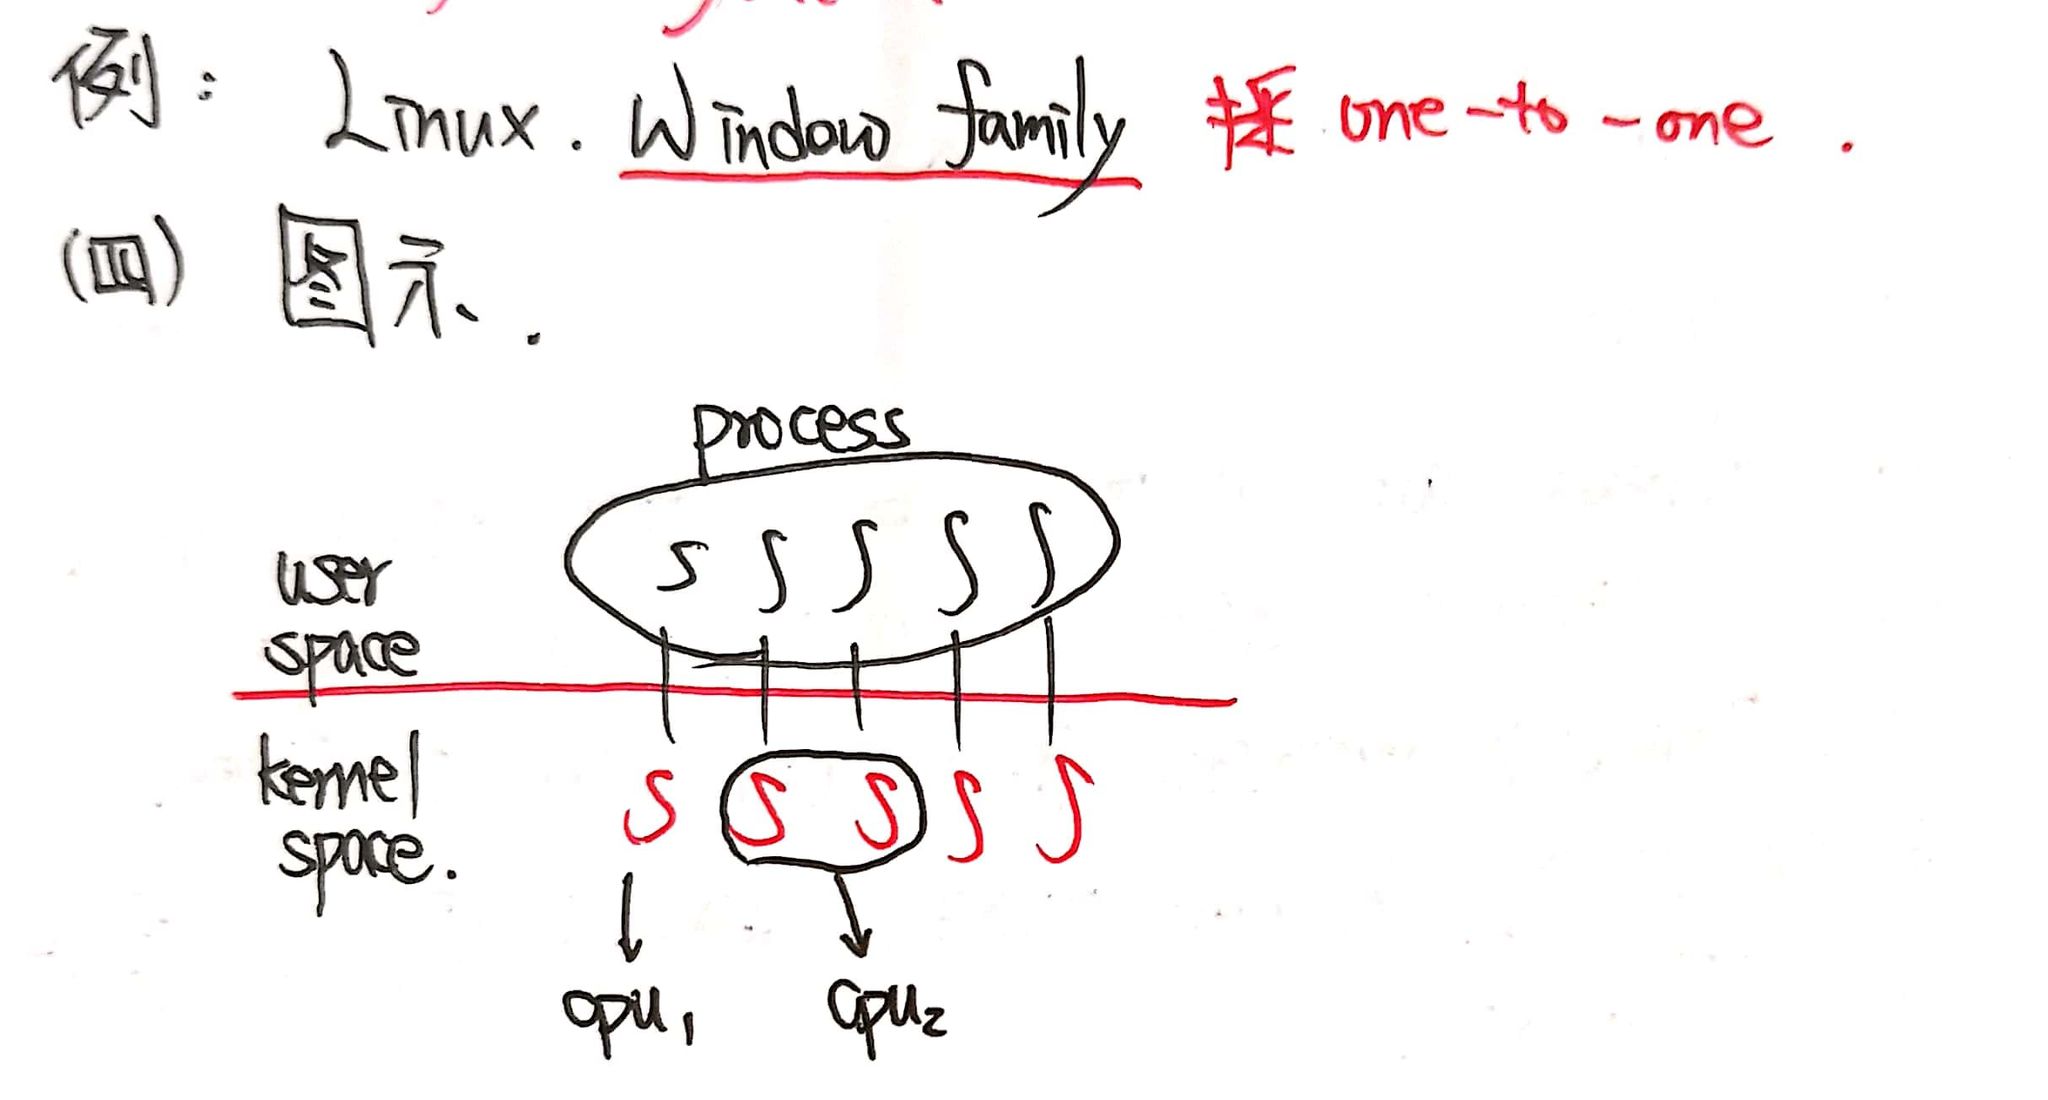 例: Linux. Window family 採 one-to-one.
(四) 图示.
process
user
space
kernel
space.
cpu1 cpu2